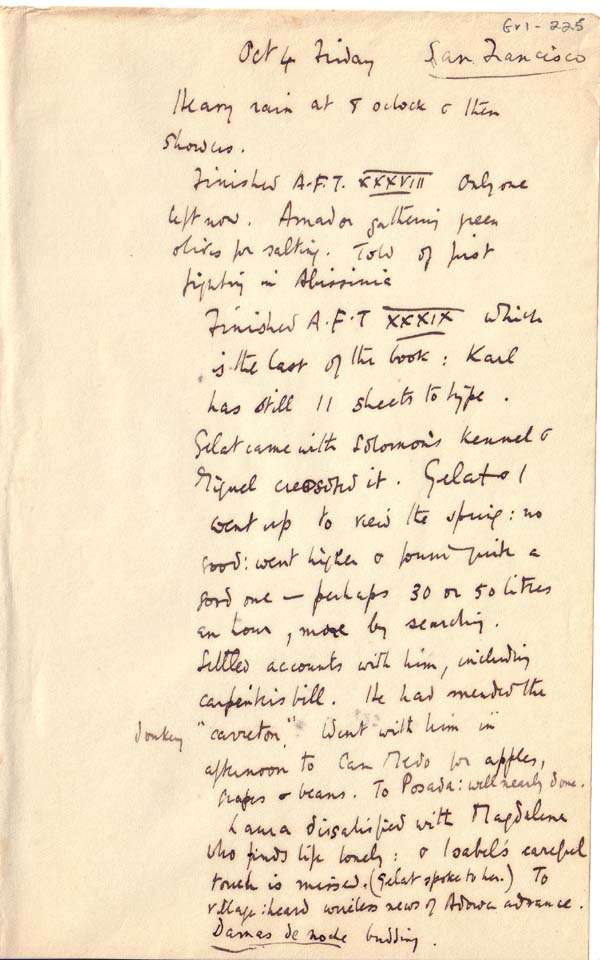 Gr1 - 225
Oct 4 Friday San Francisco
Heavy rain at 8 oclock & then
showers.
Finished A.F.T. XXXVIII Only one
left now. Amador gathering green
olives for salting. Told of first
fighting in Abissinia
Finished A.F.T XXXIX which
is the last of the book: Karl
has still 11 sheets to type.
Gelat came with Solomon's kennel &
Miguel creosoted it. Gelat & I
went up to view the spring: no
good: went higher & found quite a
good one — perhaps 30 or 50 litres
an hour, more by searching.
Settled accounts with him, including
carpenter's bill. He had mended the
donkey "carreton". Went with him in
afternoon to Can Medo for apples,
grapes & beans. To Posada: well nearly done.
Laura dissatisfied with Magdalena
who finds life lonely: & Isabel's careful
touch is missed. (Gelat spoke to her.) To
village: heard wireless news of Adowa advance.
Damas de noche budding.